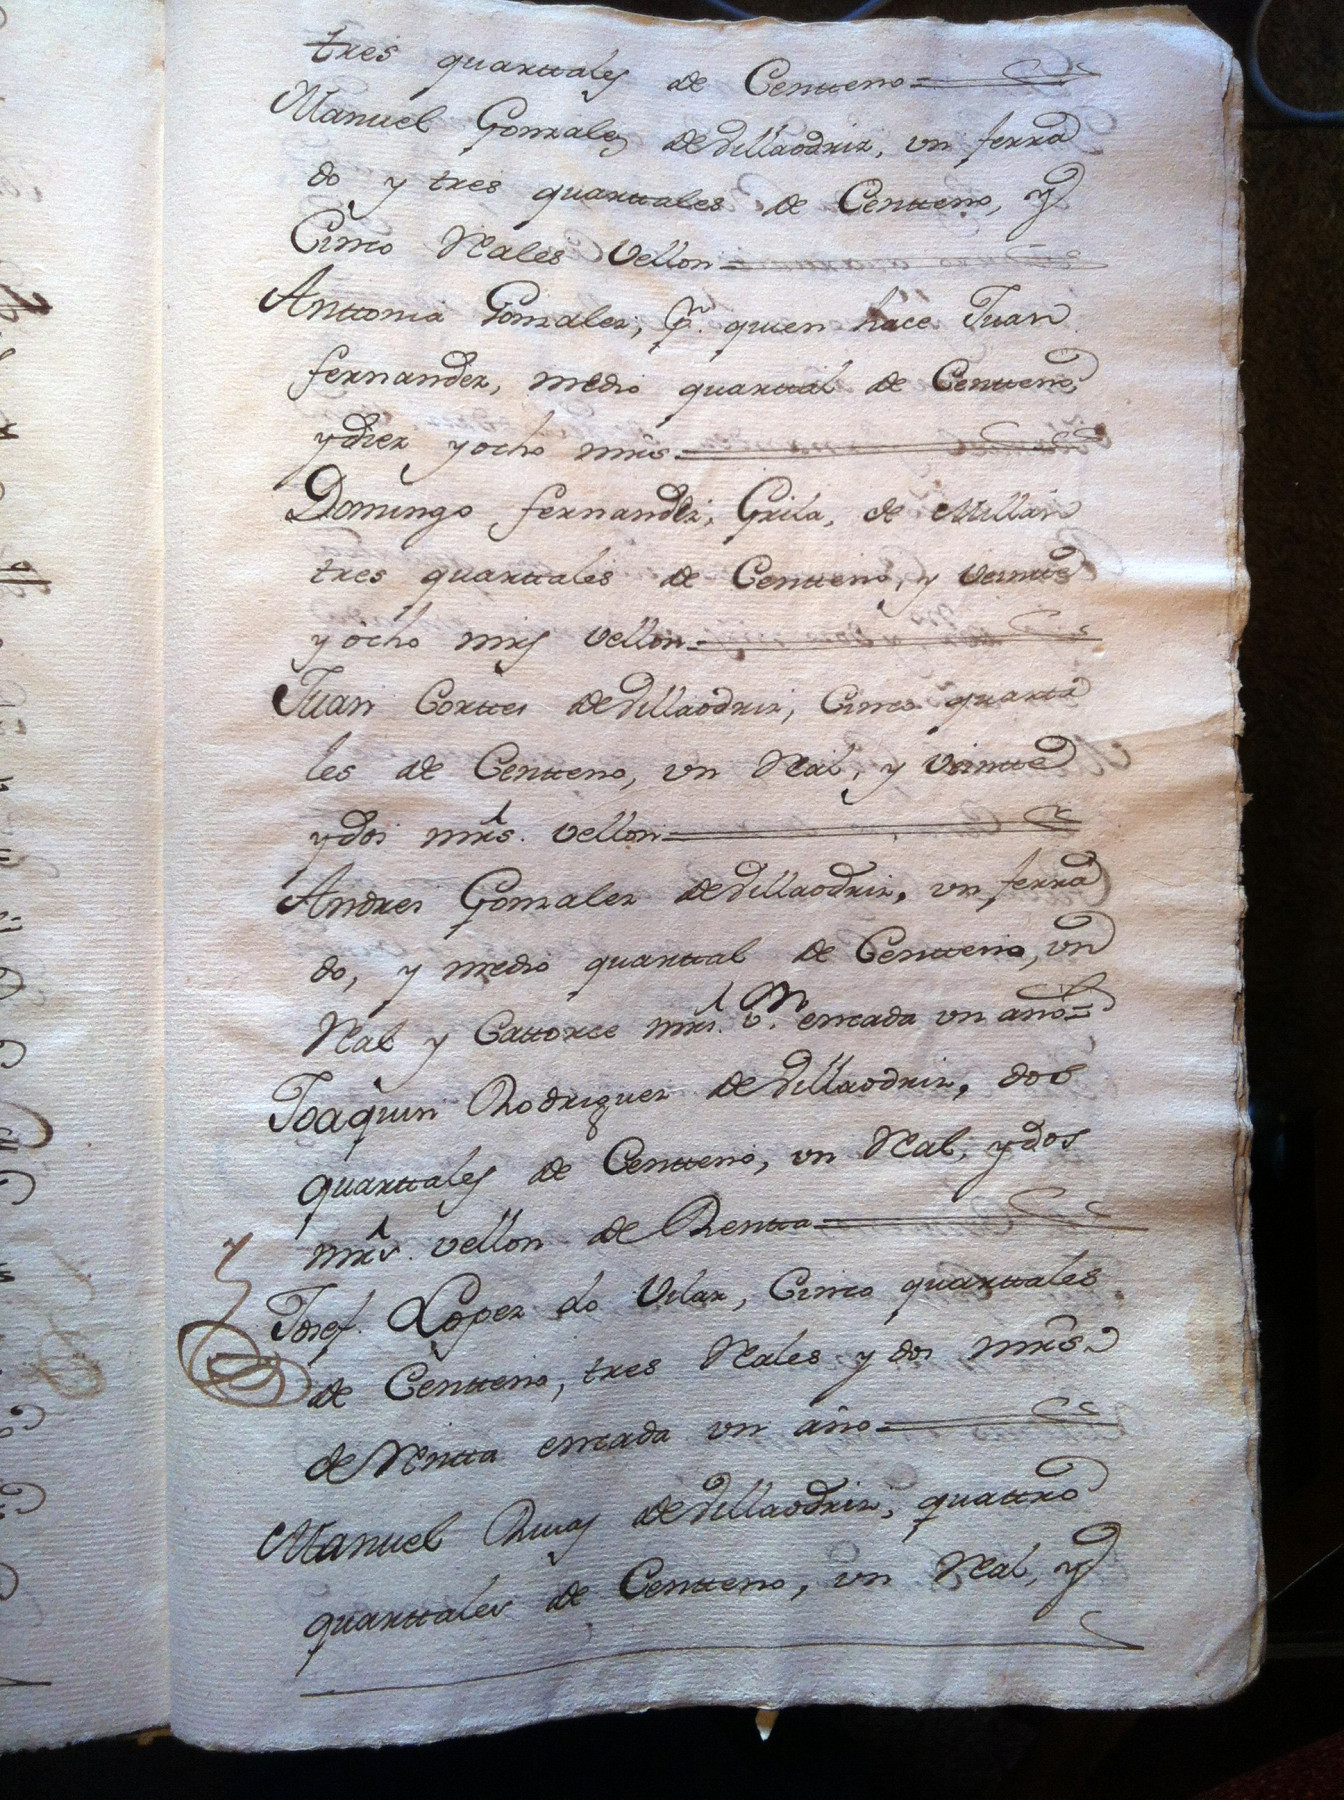 tres quarttales de Centteno=
Manuel Gonzalez de Villaodriz, un ferra
do y tres quarttales de Centteno, y
Cinco Rales Vellon=
Anttonia Gonzalez, Pr. quien hace Juan
fernandez, medio quarttal de Centteno,
y diez y ocho mrs.=
Domingo fernandez, Grila, de Millan
tres quarttales de Centteno, y Veintte
y ocho mrs vellon=
Juan Corttes de Villaodriz, Cinco quartta
les de Centteno, un Real, y Veintte
y dos mrs. vellon=
Andres Gonzalez de Villaodriz, un ferra
do, y medio quarttal de Centteno, un
Real y Cattorce mrs. Vn. en cada un año=
Joaquin Rodriguez de Villaodriz, dos
quarttales de Centteno, un Real, y dos
mrs. vellon de Rentta=
Josef. Lopez do Vilar, Cinco quarttales
de Centteno, tres Reales y dos mrs.
de Rentta en cada un año=
Manuel de Villaodriz, quattro
quarttales de Centteno, un Real, y